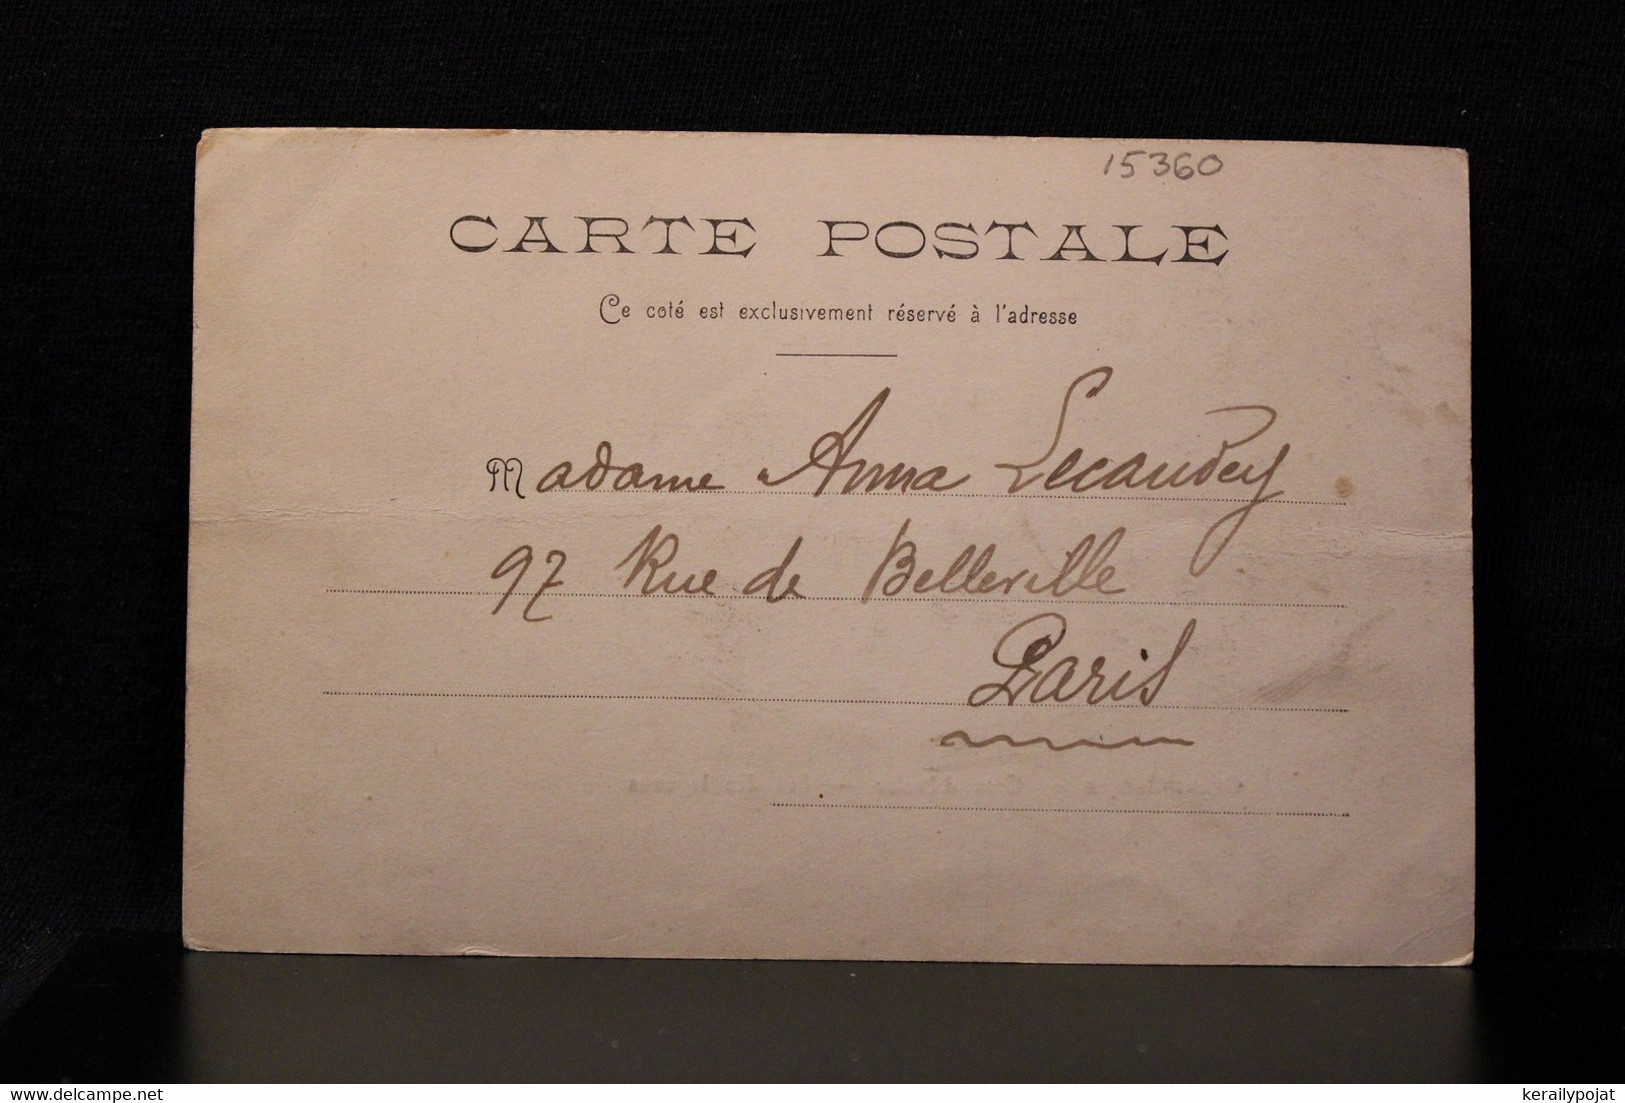 15360
CARTE POSTALE
Ce coté est exclusivement réservé à l'adresse
Madame Anna Lecaudey
97 Rue de Belleville
Paris
delcampe.net
kerailypojat